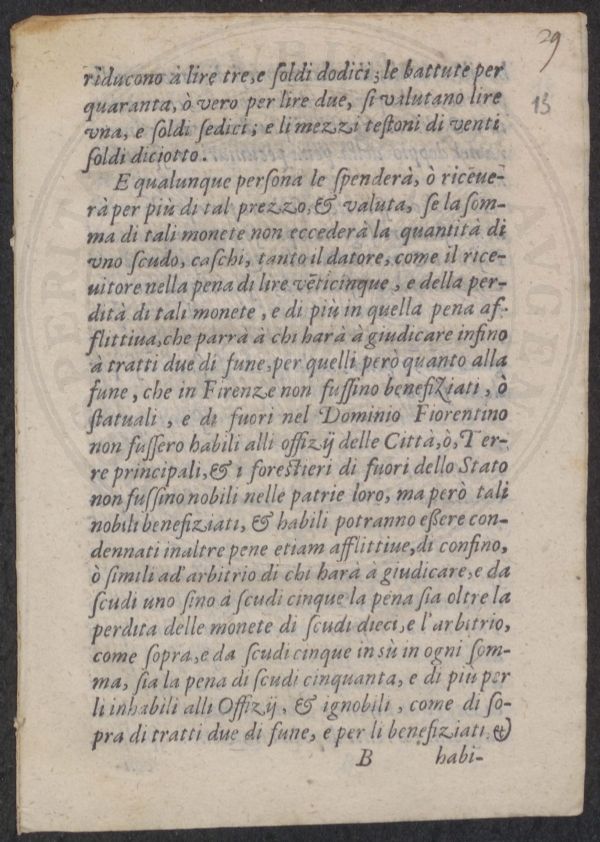 29
13
riducono à lire tre, e ſoldi dodici; le battute per
quaranta, ò vero per lire due, ſi valutano lire
vna, e ſoldi ſedici; e li mezzi teſtoni di venti
ſoldi diciotto.
E qualunque perſona le ſpenderà, ò riceue-
rà per più di tal prezzo, & valuta, ſe la ſom-
ma di tali monete non eccederà la quantità di
vno ſcudo, caſchi, tanto il datore, come il rice-
uitore nella pena di lire vẽticinque, e della per-
dità di tali monete, e di più in quella pena af-
flittiua, che parrà à chi harà à giudicare inſino
à tratti due di fune, per quelli però quanto alla
fune, che in Firenze non fuſſino benefiziati, ò
ſtatuali, e di fuori nel Dominio Fiorentino
non fuſſero habili alli offizÿ delle Città, ò, Ter-
re principali, & i foreſtieri di fuori dello Stato
non fuſſino nobili nelle patrie loro, ma però tali
nobili benefiziati, & habili potranno eßere con-
dennati in altre pene etiam afflittiue, di confino,
ò ſimili ad'arbitrio di chi harà à giudicare, e da
ſcudi uno ſino à ſcudi cinque la pena ſia oltre la
perdita delle monete di ſcudi dieci, e l'arbitrio,
come ſopra, e da ſcudi cinque in sù in ogni ſom-
ma, ſia la pena di ſcudi cinquanta, e di più per
li inhabili alli Offizÿ, & ignobili, come di ſo-
pra di tratti due di fune, e per li benefiziati, &
B habi-